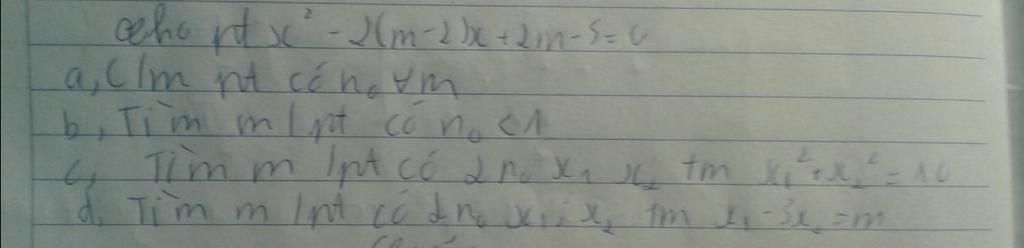 cho pt x² - 2(m-2)x + 2m - 5 = 0
a, C/m pt có n₀ ∀m
b, Tìm m / pt có n₀ < 1
c, Tìm m / pt có 2 n₀ x₁ x₂ tm x₁² + x₂² = 10
d, Tìm m / pt có 2 n₀ x₁; x₂ tm x₁ - 3x₂ = m